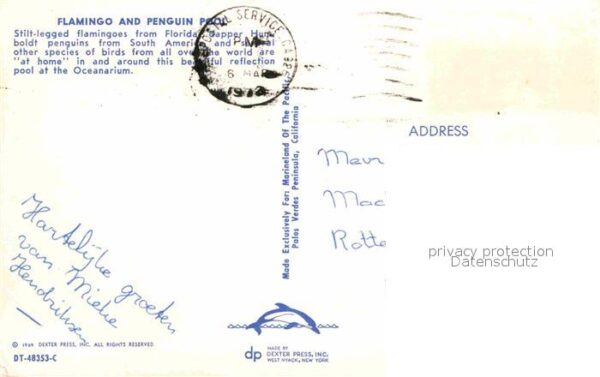 FLAMINGO AND PENGUIN POOL
Stilt-legged flamingoes from Florida, dapper Hum-
boldt penguins from South America and several
other species of birds from all over the world are
"at home" in and around this beautiful reflection
pool at the Oceanarium.
POSTAL SERVICE CA
PM
6 MAR
1973
ADDRESS
Made Exclusively For: Marineland Of The Pacific
Palos Verdes Peninsula, California
Mevr
Mac
Rotte
privacy protection
Datenschutz
Hartelijke groeten
van Mieke
Hendriksen
© 1969 DEXTER PRESS, INC. ALL RIGHTS RESERVED.
DT-48353-C
dp
MADE BY
DEXTER PRESS, INC.
WEST NYACK, NEW YORK